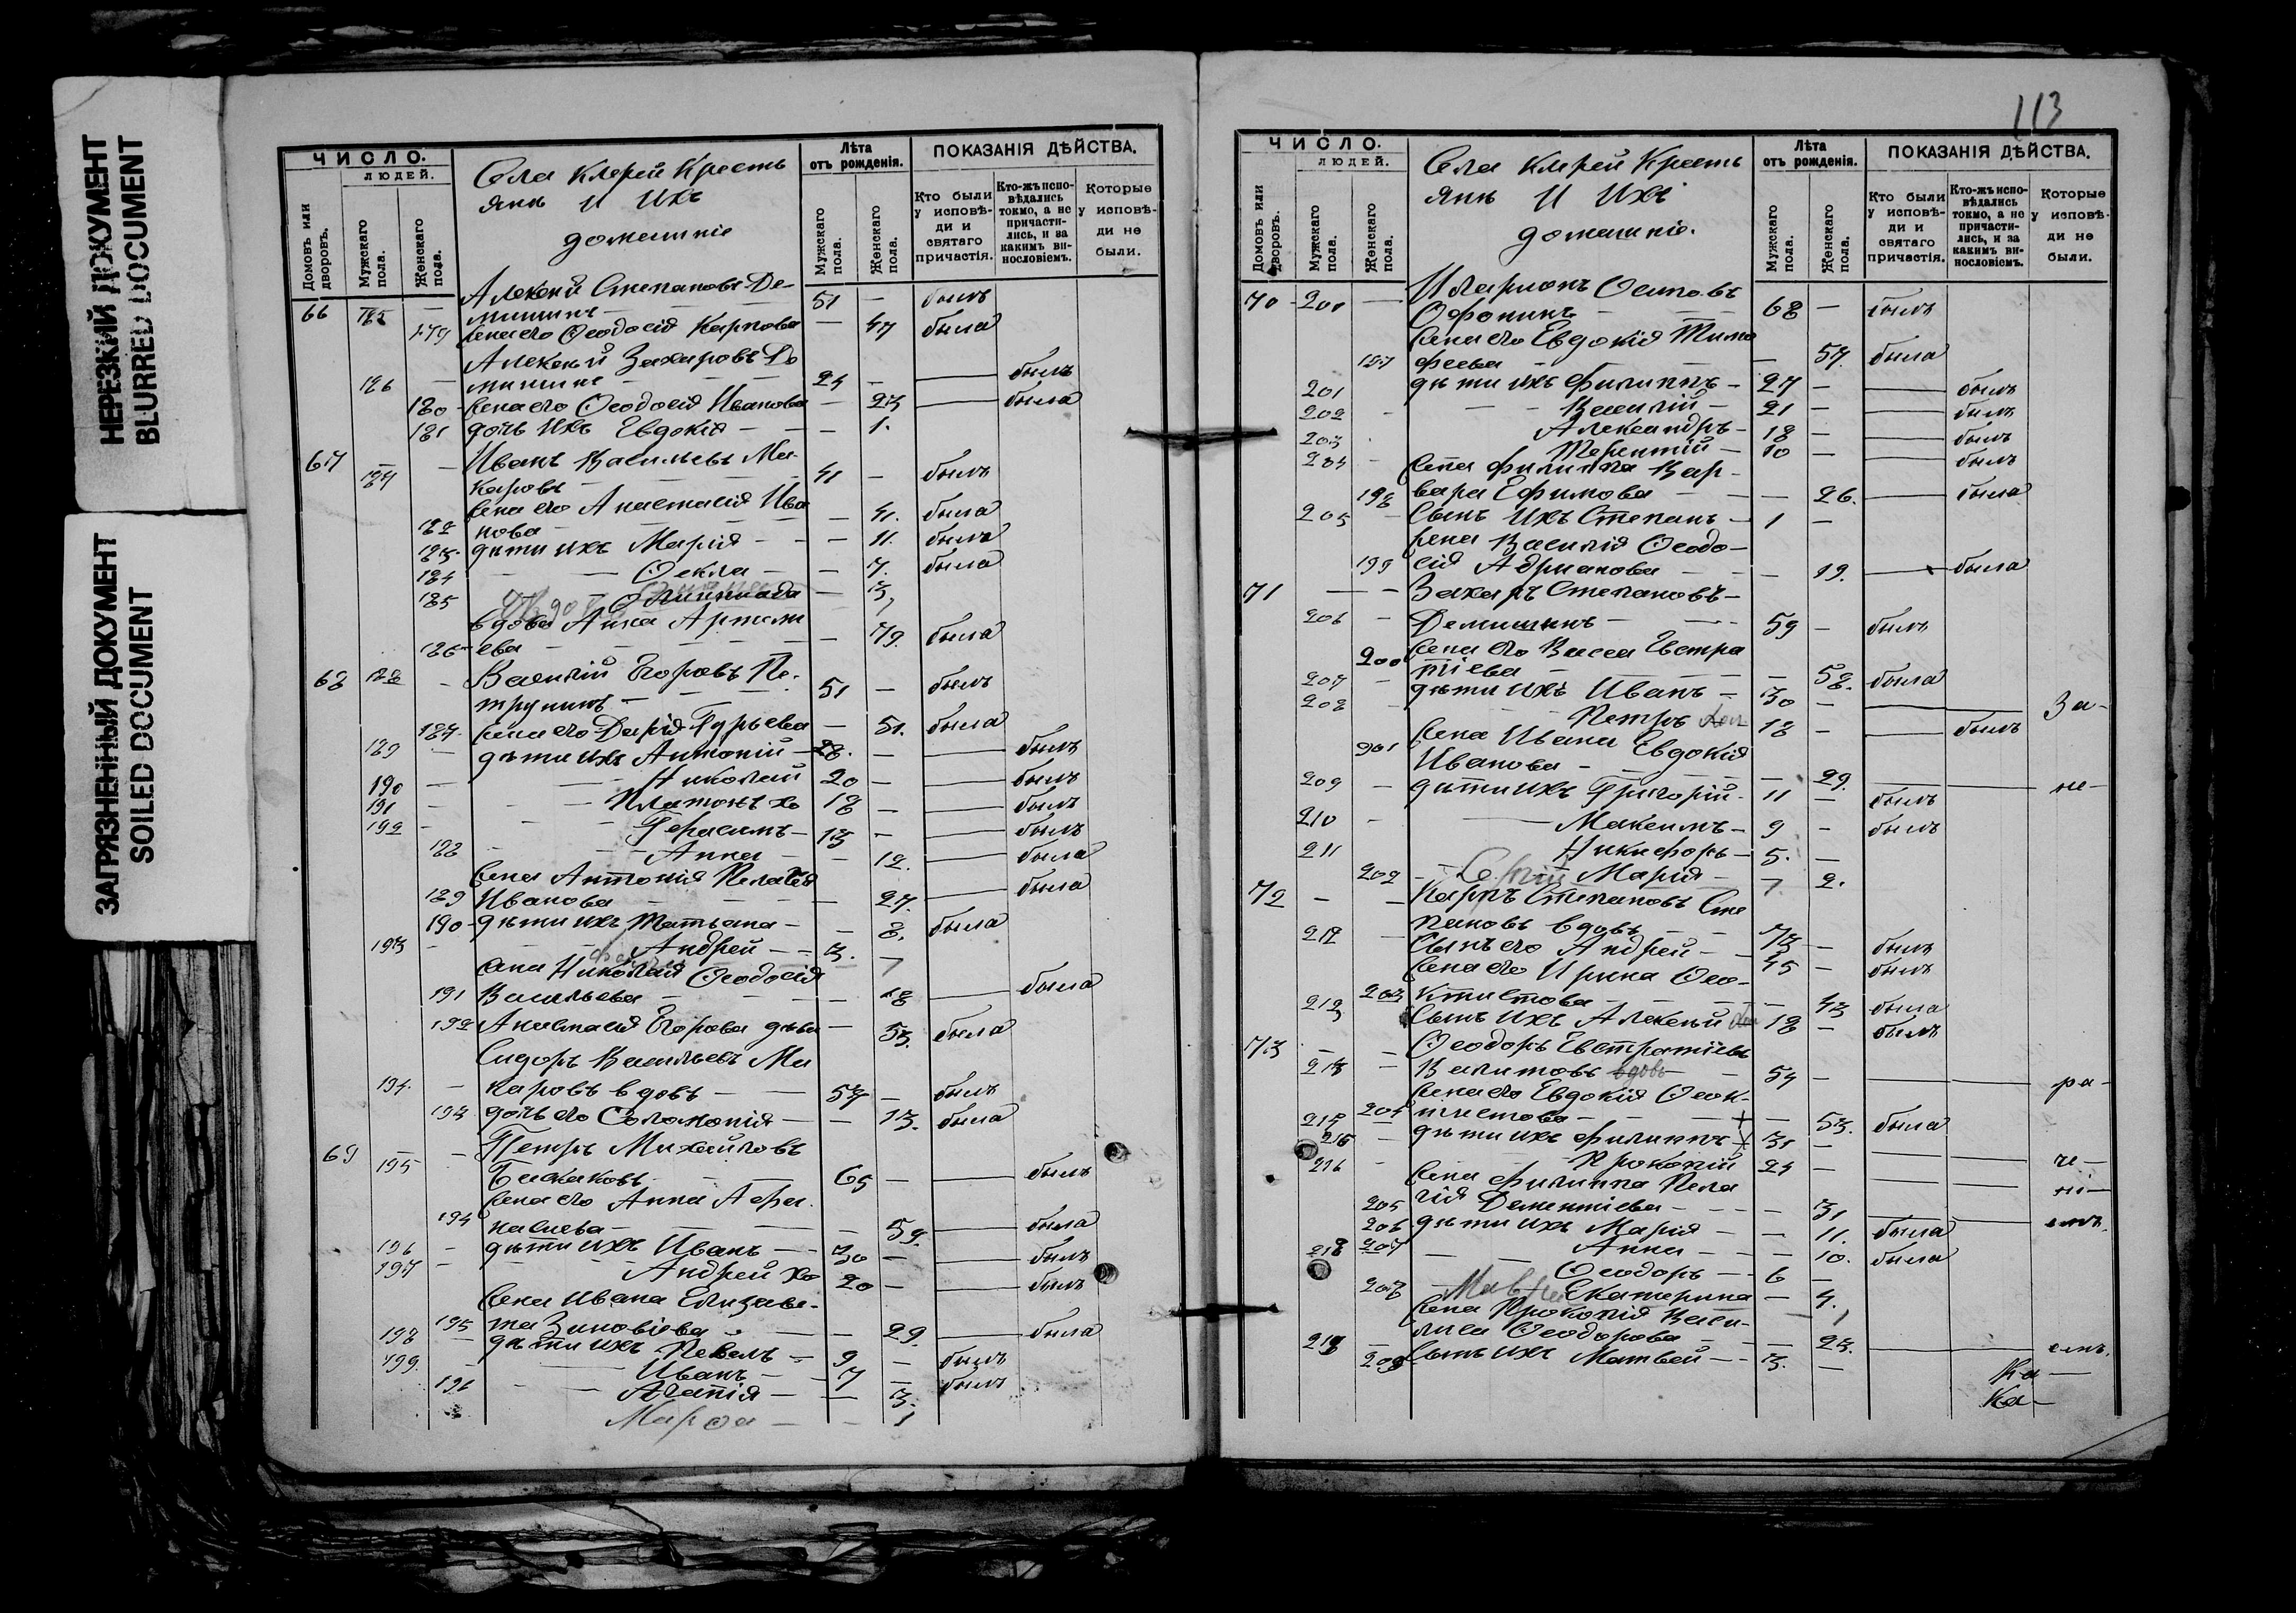 НЕРЕЗКИЙ ДОКУМЕНТ
BLURRED DOCUMENT
ЗАГРЯЗНЕННЫЙ ДОКУМЕНТ
SOILED DOCUMENT
ЧИСЛО.
ЛЮДЕЙ.
Домовъ или дворовъ.
Мужскаго пола.
Женскаго пола.
Села Клерей Кресть
янъ и ихъ
домашніе
Лѣта
отъ рожденія.
Мужскаго пола.
Женскаго пола.
ПОКАЗАНІЯ ДѢЙСТВА.
Кто были у исповѣ-ди и святаго причастія.
Кто-жъ испо-вѣдались токмо, а не причасти-лись, и за какимъ ви-нословіемъ.
Которые у исповѣ-ди не были.
Алексѣй Степановъ Де-
66 185 — мишинъ — 51 — былъ
179 Жена его Ѳеодосія Карпова — 47 была
Алексѣй Захаровъ Де
186 — мишинъ — 24 — — былъ
180 Жена его Ѳеодосія Иванова — 23 — была
181 дочь ихъ Евдокія — — 1.
67 — Иванъ Васильевъ Ма-
187 каровъ — 41 — былъ
Жена его Анастасія Ива
182 нова — — 41. была
183 дѣти ихъ Марія — — 11. была
184 — Ѳекла — — 7. была
185 Олимпіада — 3,
вдова Анна Артем
186 ева — — 79. была
68 188 — Василій Егоровъ Пе-
трунинъ — 51 — былъ
187 Жена его Дарія Гурьева — 51. была
189 — дѣти ихъ Антоній — 28. — — былъ
190 — Николай 20 — — былъ
191 — Платонъ хо 18 — — былъ
192 — Герасимъ — 13 — — былъ
188 — Анна — — 12. — была
Жена Антонія Пелагія
189 Иванова — — 27. — была
190 дѣти ихъ Татьяна — — 8. была
193 — Андрей — 3.
Жена Николая Ѳеодосія
191 Васильева — — 18 — была
192 Анастасія Егорова дѣва — 53. была
Сидоръ Васильевъ Ма
194 — каровъ вдовъ — 57 — былъ
193 дочь его Соломонія — — 13. была
69 — Петръ Михайловъ
195 — 65 — — былъ
Жена его Анна Афа-
194 насиева — — 59. — была
196 — дѣти ихъ Иванъ — 30 — — былъ
197 — Андрей хо 20 — — былъ
Жена Ивана Елизаве-
195 та Зиновіева — — 29. — была
198 — дѣти ихъ Павелъ — 9 — былъ
199. — Иванъ — 7 — былъ
196 — Агапія — — 3.
Марѳа — — 1
113
ЧИСЛО.
ЛЮДЕЙ.
Домовъ или дворовъ.
Мужскаго пола.
Женскаго пола.
Села Клерей Кресть
янъ и ихъ
домашніе.
Лѣта
отъ рожденія.
Мужскаго пола.
Женскаго пола.
ПОКАЗАНІЯ ДѢЙСТВА.
Кто были у исповѣ-ди и святаго причастія.
Кто-жъ испо-вѣдались токмо, а не причасти-лись, и за какимъ ви-нословіемъ.
Которые у исповѣ-ди не были.
70 200 — Иларіонъ Осиповъ
Офонинъ — 68 — былъ
Жена его Евдокія Тимо
197 феева — — 57. была
201 дѣти ихъ Филиппъ — 27 — — былъ
202 — Василій — 21 — — былъ
203 Александръ — 18 — — былъ
204 — Терентій — 10 — — былъ
Жена Филиппа Вар-
198 вара Ефимова — — 26. — была
205 — Сынъ ихъ Степанъ — 1 —
Жена Василія Ѳеодо-
199 сія Адрианова — — 19. — была
71 — — Захаръ Степановъ —
206 — Демишинъ — 59 — былъ
Жена его Васса Евстра
200 тіева — — 58. была
207 — дѣти ихъ Иванъ — 30 — — За-
208 — Петръ 18 — — былъ
Жена Ивана Евдокія
201 Иванова — — 29. — не-
209 — дѣти ихъ Григорій — 11 — былъ
210 — Максимъ — 9 — былъ
211 Никифоръ — 5. —
202 — Марія — 2.
72 — — Карпъ Степановъ Сте
пановъ вдовъ — 73 — былъ
212 — Сынъ его Андрей — 45 — былъ
Жена его Ирина Ѳео-
203 ктистова — — 43 была
213 Сынъ ихъ Алексѣй 18 — былъ
73 — — Ѳеодоръ Евстратіевъ
Валитовъ вдовъ 54 — — ра-
Жена его Евдокія Ѳеок-
204 тистова — — 53. была
— дѣти ихъ Филиппъ — 31 — — че-
216 — Прокопій 24 — — ні-
Жена Филиппа Пела
205 гія Дементіева — — 31 — емъ.
206 дѣти ихъ Марія — — 11. была
218 207 — Анна — — 10. была
— Ѳеодоръ — 6 —
208 Екатерина — 4.
Жена Прокопія Васи-
лиса Ѳеодорова — — 23. — емъ.
209 Сынъ ихъ Матвей — 3. —
Ка —
Ка —